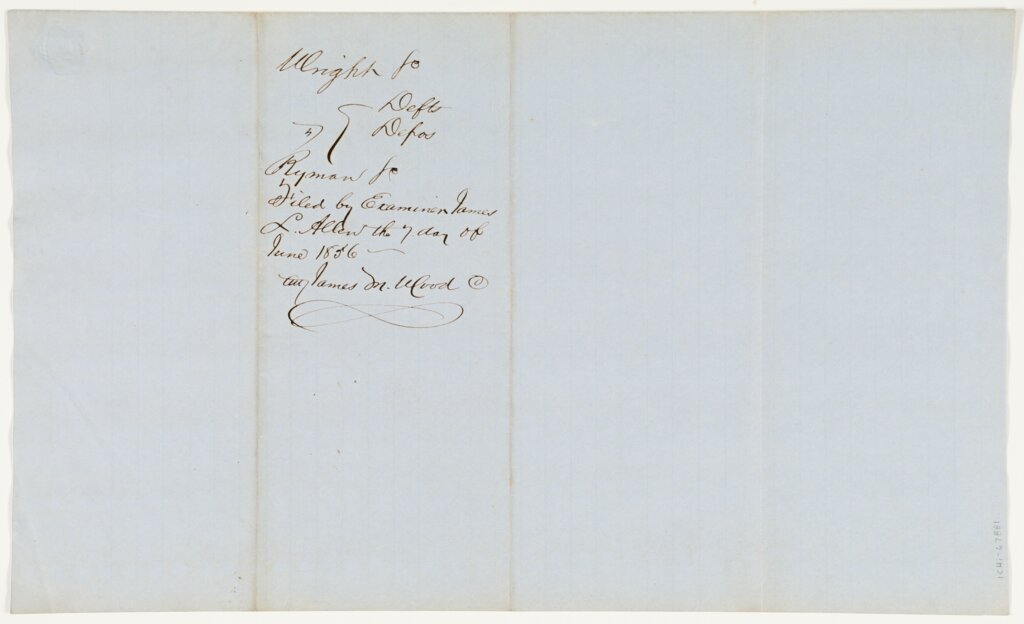 Wright &c
Defts
Depos
vs
Ryman &c
Filed by Examiner James
L. Allen the 7 day of
June 1856
att James M. Wood C
ICHi-67881